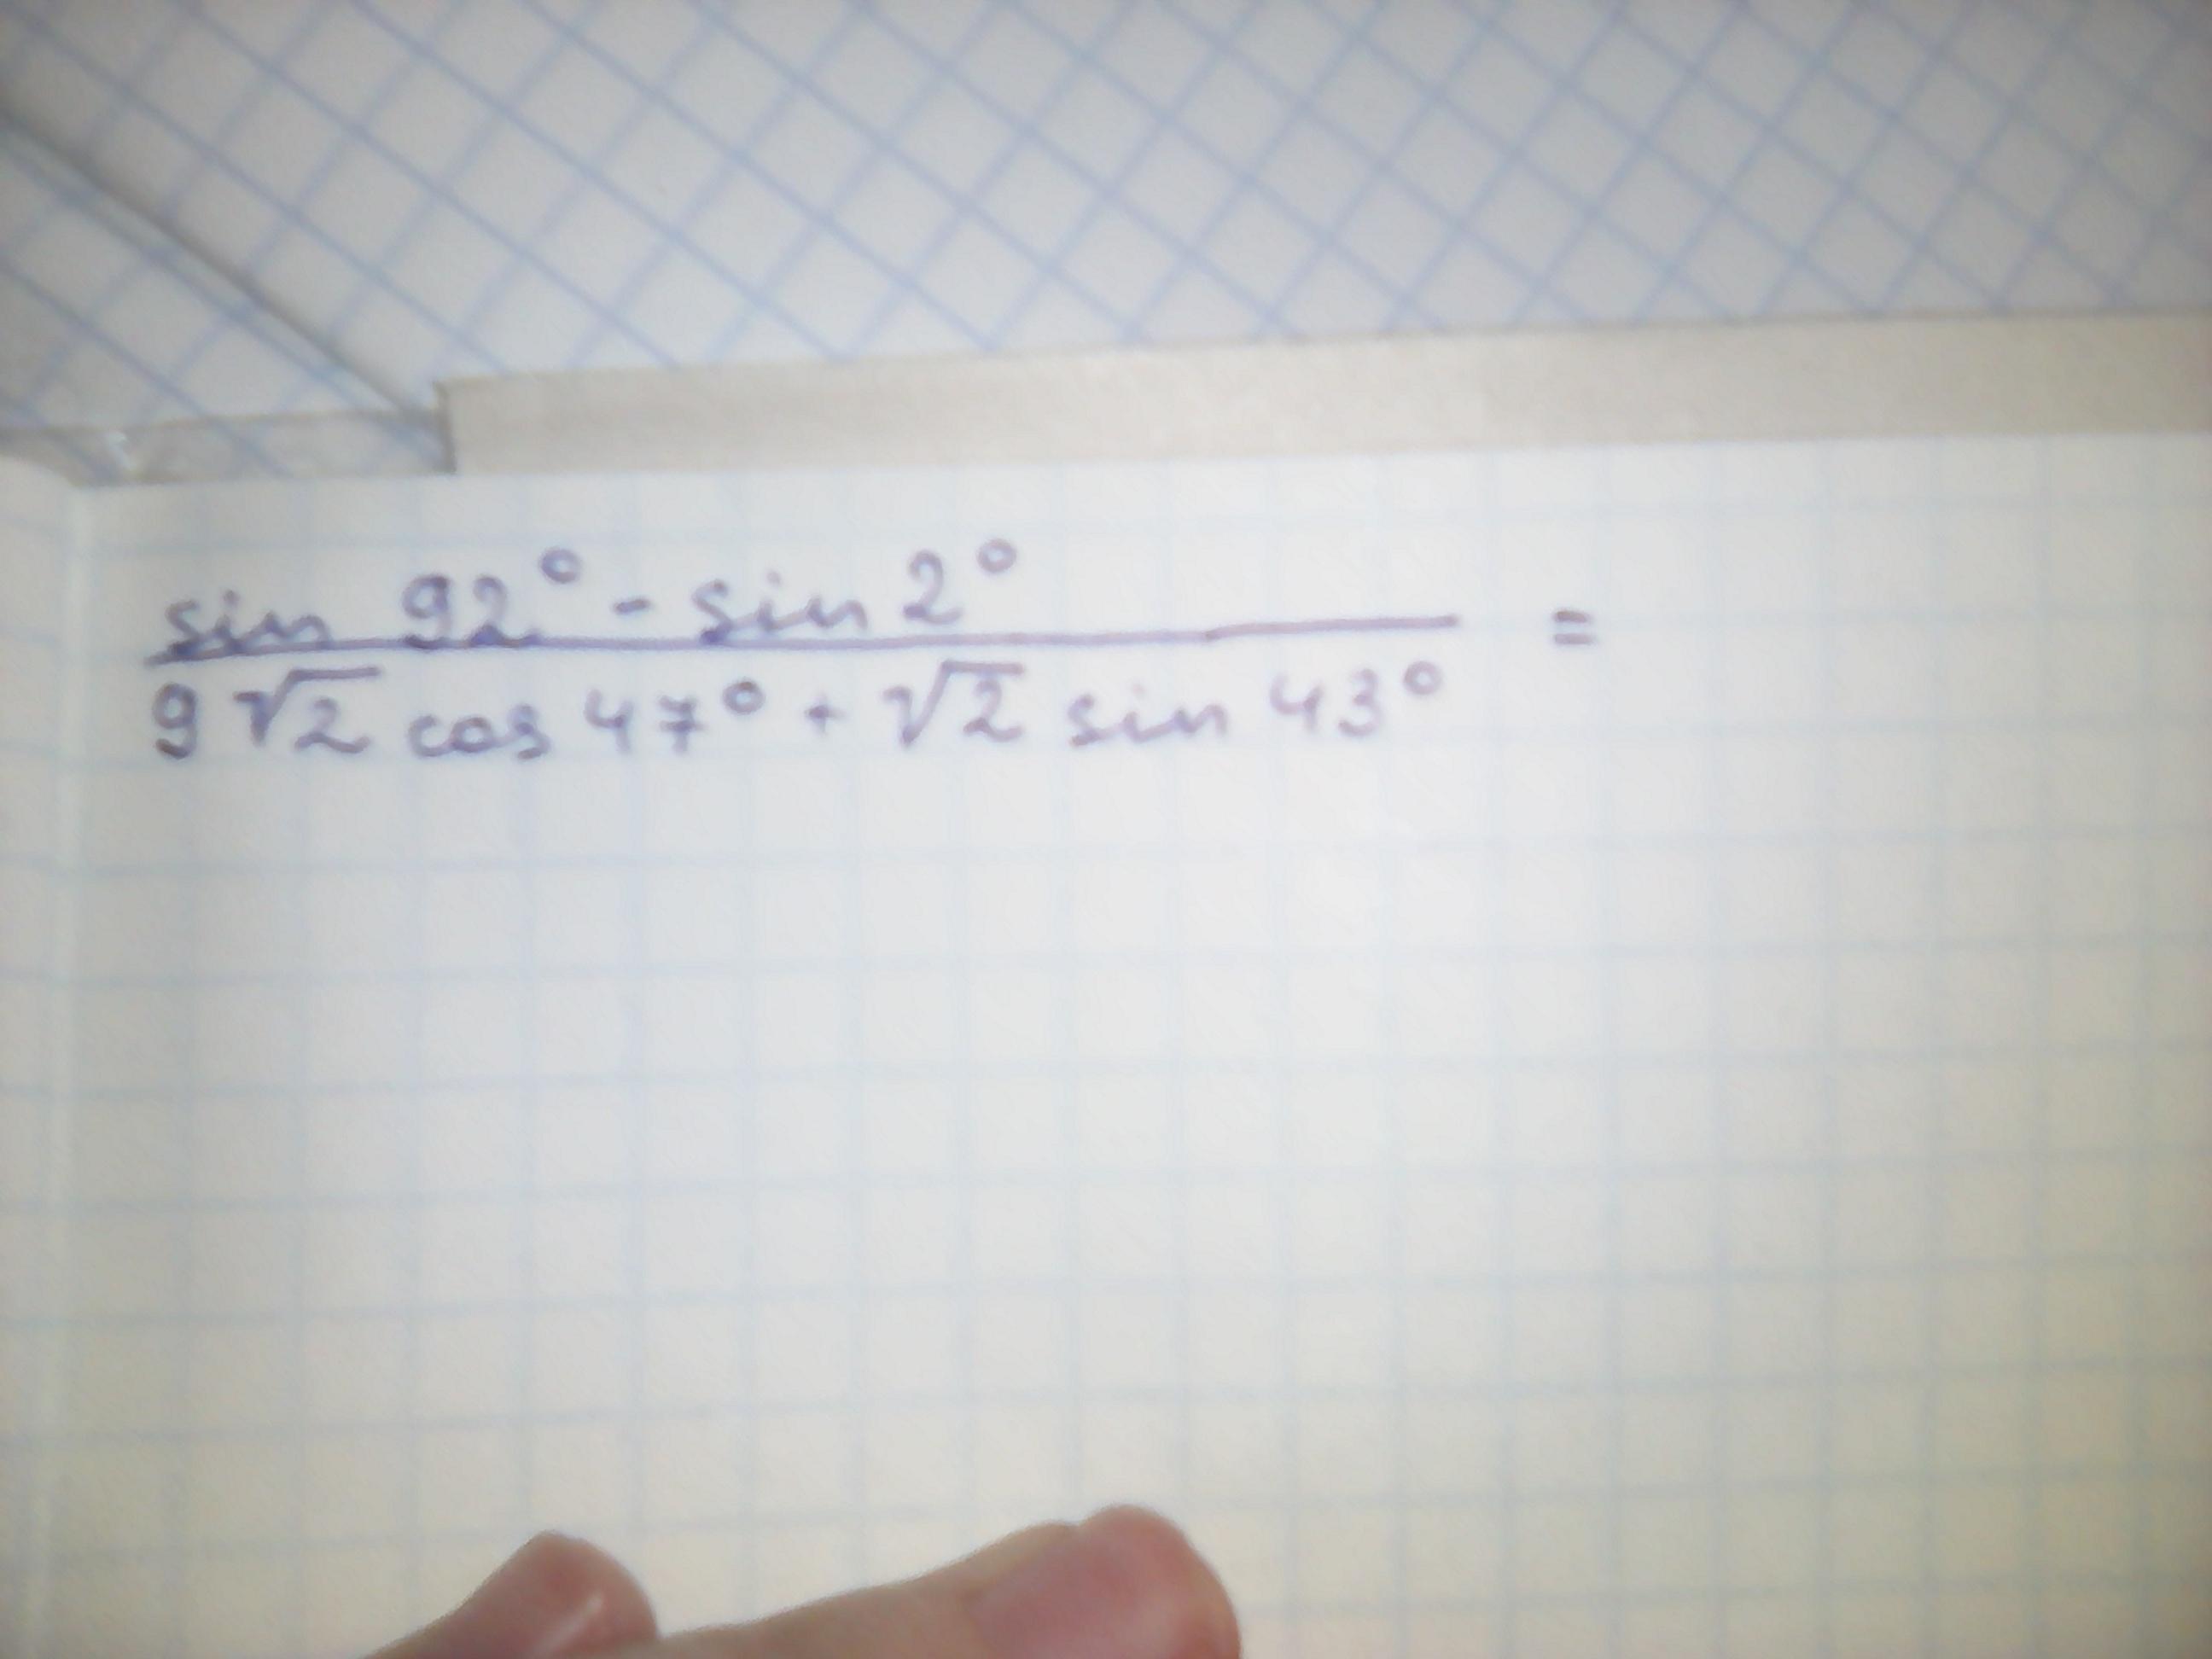 sin 92° - sin 2°
9√2 cos 47° + √2 sin 43° =